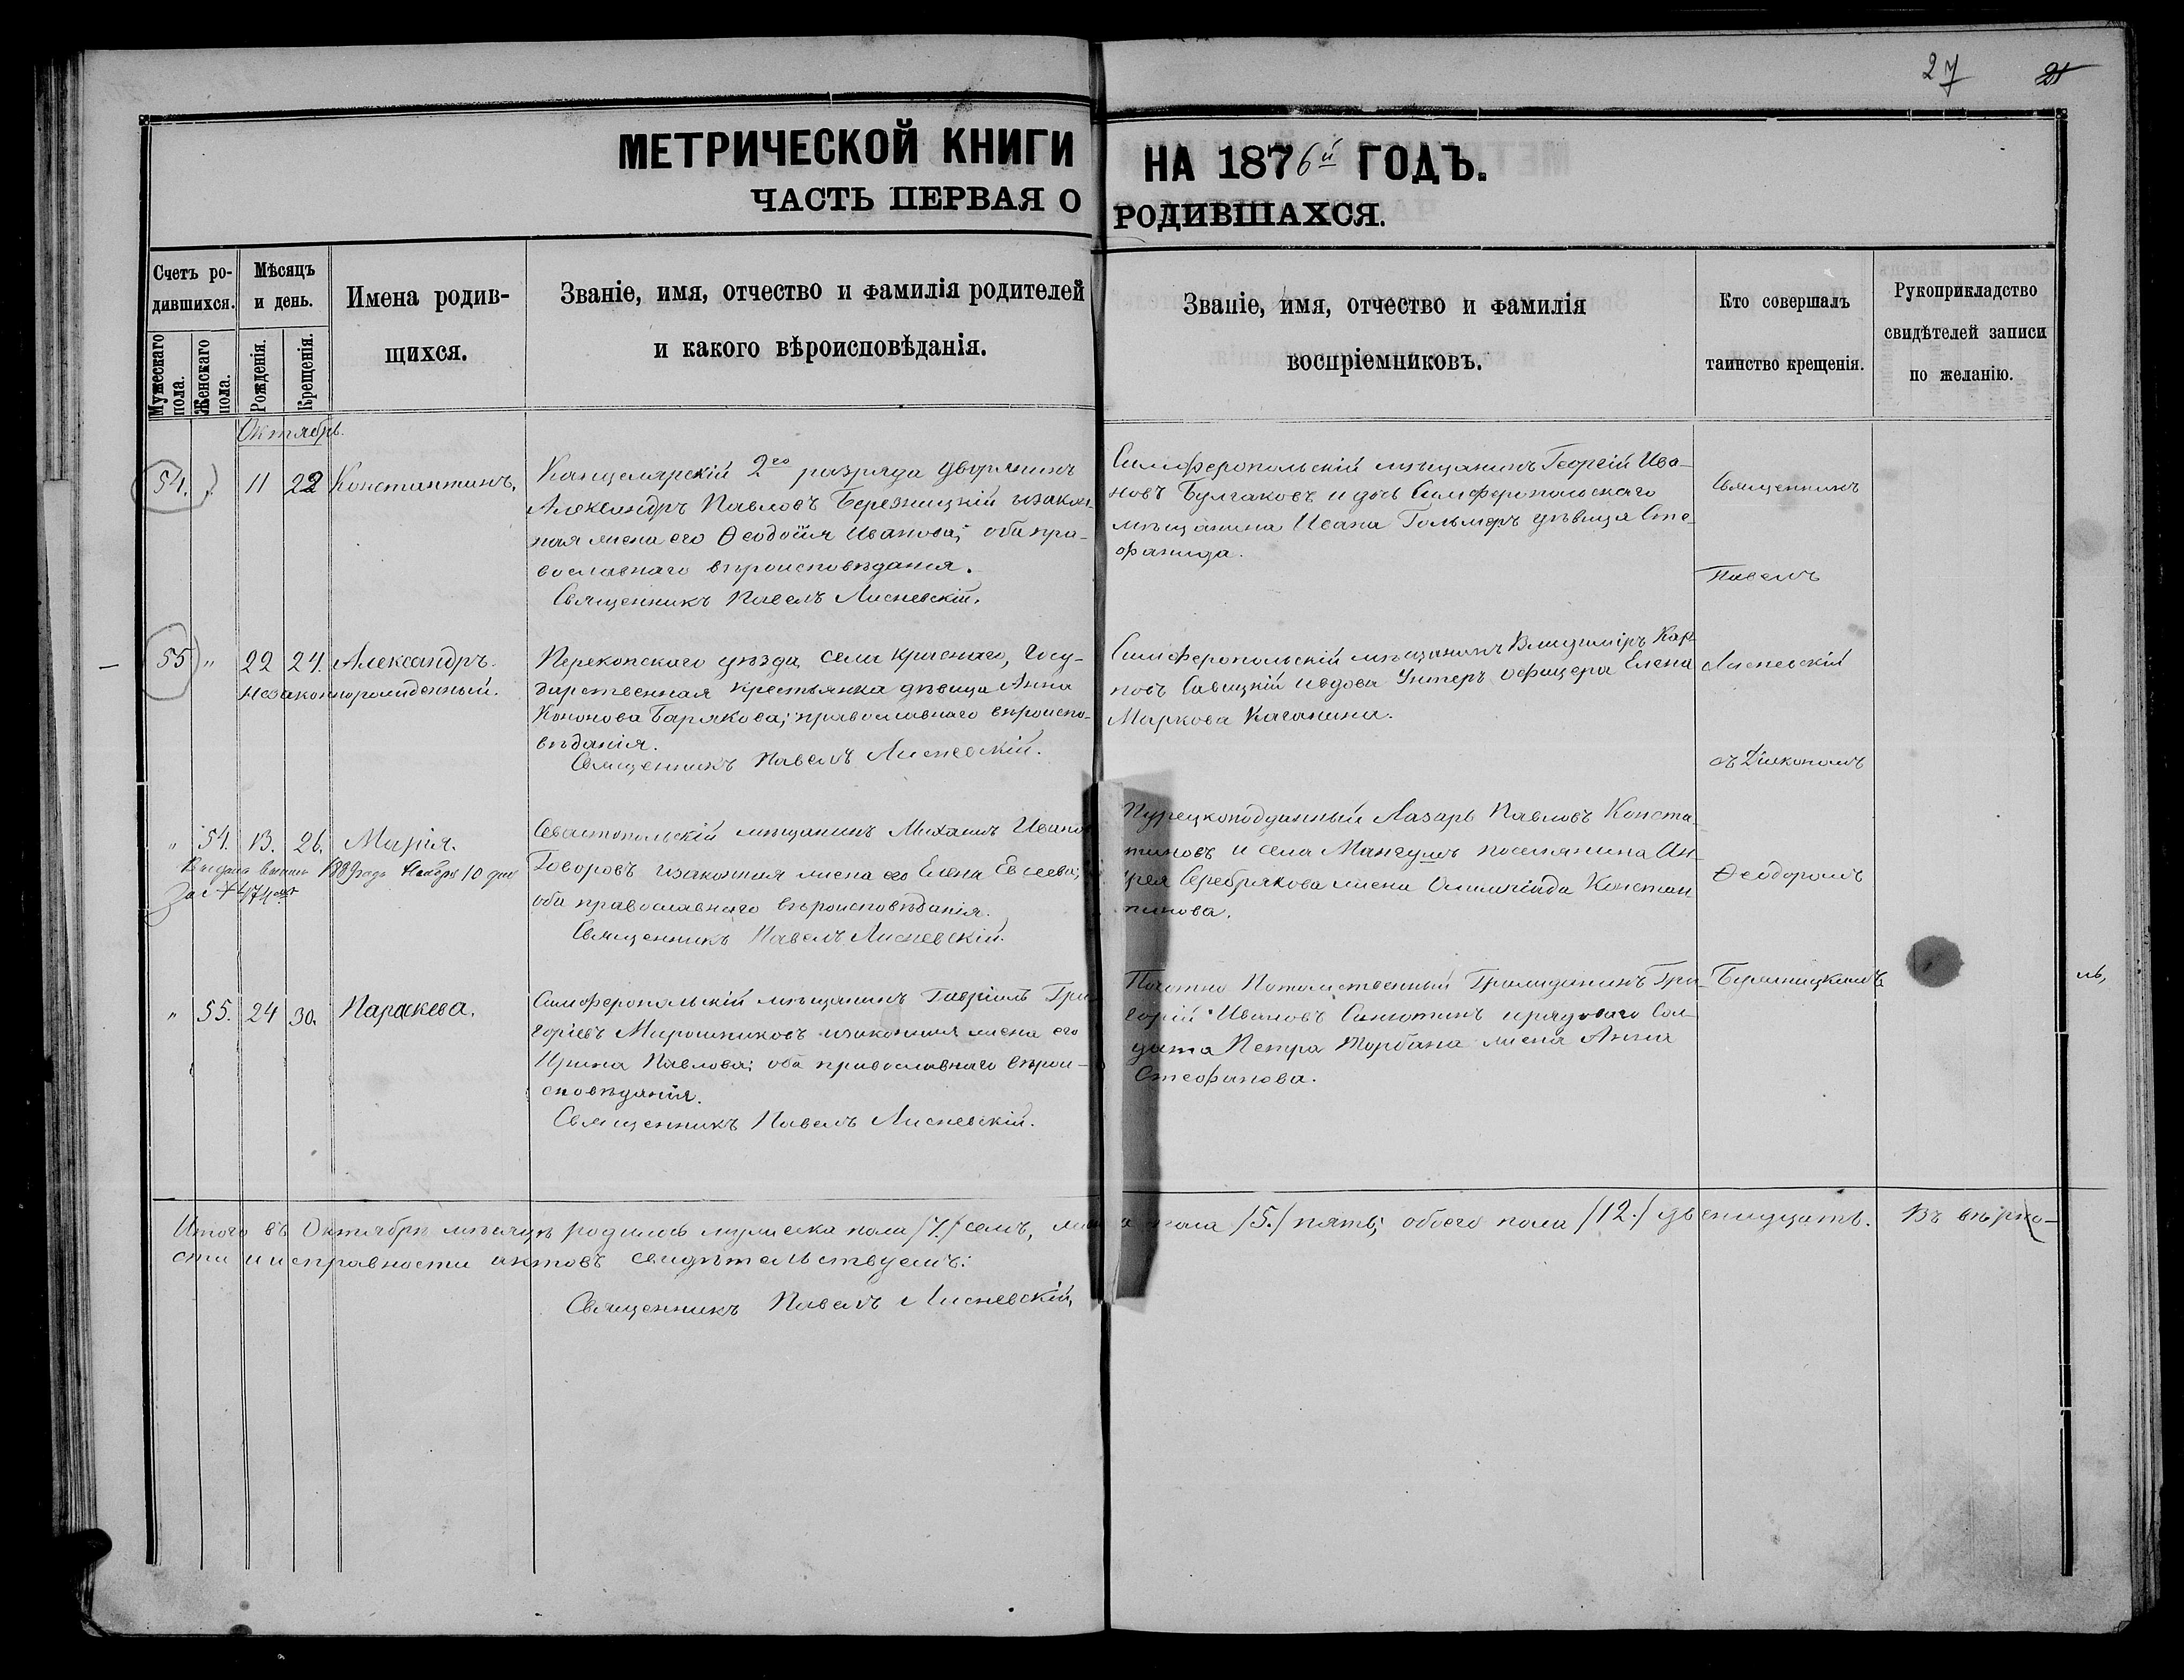 27 21
МЕТРИЧЕСКОЙ КНИГИ НА 1876й ГОДЪ.
ЧАСТЬ ПЕРВАЯ О РОДИВШАХСЯ.
Счетъ ро-
дившихся.
Мужескаго пола.
Женскаго пола.
Мѣсяцъ
и день.
Рожденія.
Крещенія.
Имена родив-
щихся.
Званіе, имя, отчество и фамилія родителей
и какого вѣроисповѣданія.
Званіе, имя, отчество и фамилія
воспріемниковъ.
Кто совершалъ
таинство крещенія.
Рукоприкладство
свидѣтелей записи
по желанію.
Октябрь.
54. " 11 22 Константинъ.
Канцелярскій 2го разряда дворянинъ
Александръ Павловъ Березницкій изакон-
ная жена его Ѳеодосія Иванова; оба пра-
вославнаго вѣроисповѣданія.
Священникъ Павелъ Лисневскій.
Симферопольскій мѣщанинъ Георгій Ива-
новъ Булгаковъ и дочь Симферопольскаго
мѣщанина Ивана Гольмеръ дѣвица Сте-
фанида.
Священникъ
Павелъ
55 " 22 24. Александръ.
незаконнорожденный.
Перекопскаго уѣзда, села Краснаго, Госу-
дарственная крестьянка дѣвица Анна
Кононова Барякова; православнаго вѣроиспо-
вѣданія.
Священникъ Павелъ Лисневскій.
Симферопольскій мѣщанинъ Владиміръ Кар-
повъ Савицкій ивдова Унтеръ офицера Елена
Маркова Каганина.
Лисневскій
съ Діакономъ
" 54. 13. 26. Марія.
1889 года Ноября 10 дня
за №
Севастопольскій мѣщанинъ Михаилъ Иванов
Говоровъ изаконная жена его Елена Евсеева;
оба православнаго вѣроисповѣданія.
Священникъ Павелъ Лисневскій.
Турецкоподданный Лазарь Павловъ Конста-
тиновъ и села Мангушъ поселянина Ан-
дрея Серебрякова жена Олимпіада Констан-
тинова.
Ѳеодоромъ
" 55. 24 30. Параскева.
Симферопольскій мѣщанинъ Гавріилъ Гри-
горіевъ Мирошниковъ изаконная жена его
Ирина Павлова; оба православнаго вѣрои-
сповѣданія.
Священникъ Павелъ Лисневскій.
Почотно Потомственный Гражданинъ Гри-
горій Ивановъ Санютинъ ирядоваго Сол-
дата Петра Торбана жена Анна
Стефанова.
Бережницкимъ
Итого въ Октябрѣ мѣсяцѣ родилось мужеска пола /7./ семь, же а пола /5./ пять; обоего пола /12./ двенадцать. Въ вѣрно-
сти иисправности актовъ свидѣтельствуемъ:
Священникъ Павелъ Лисневскій,